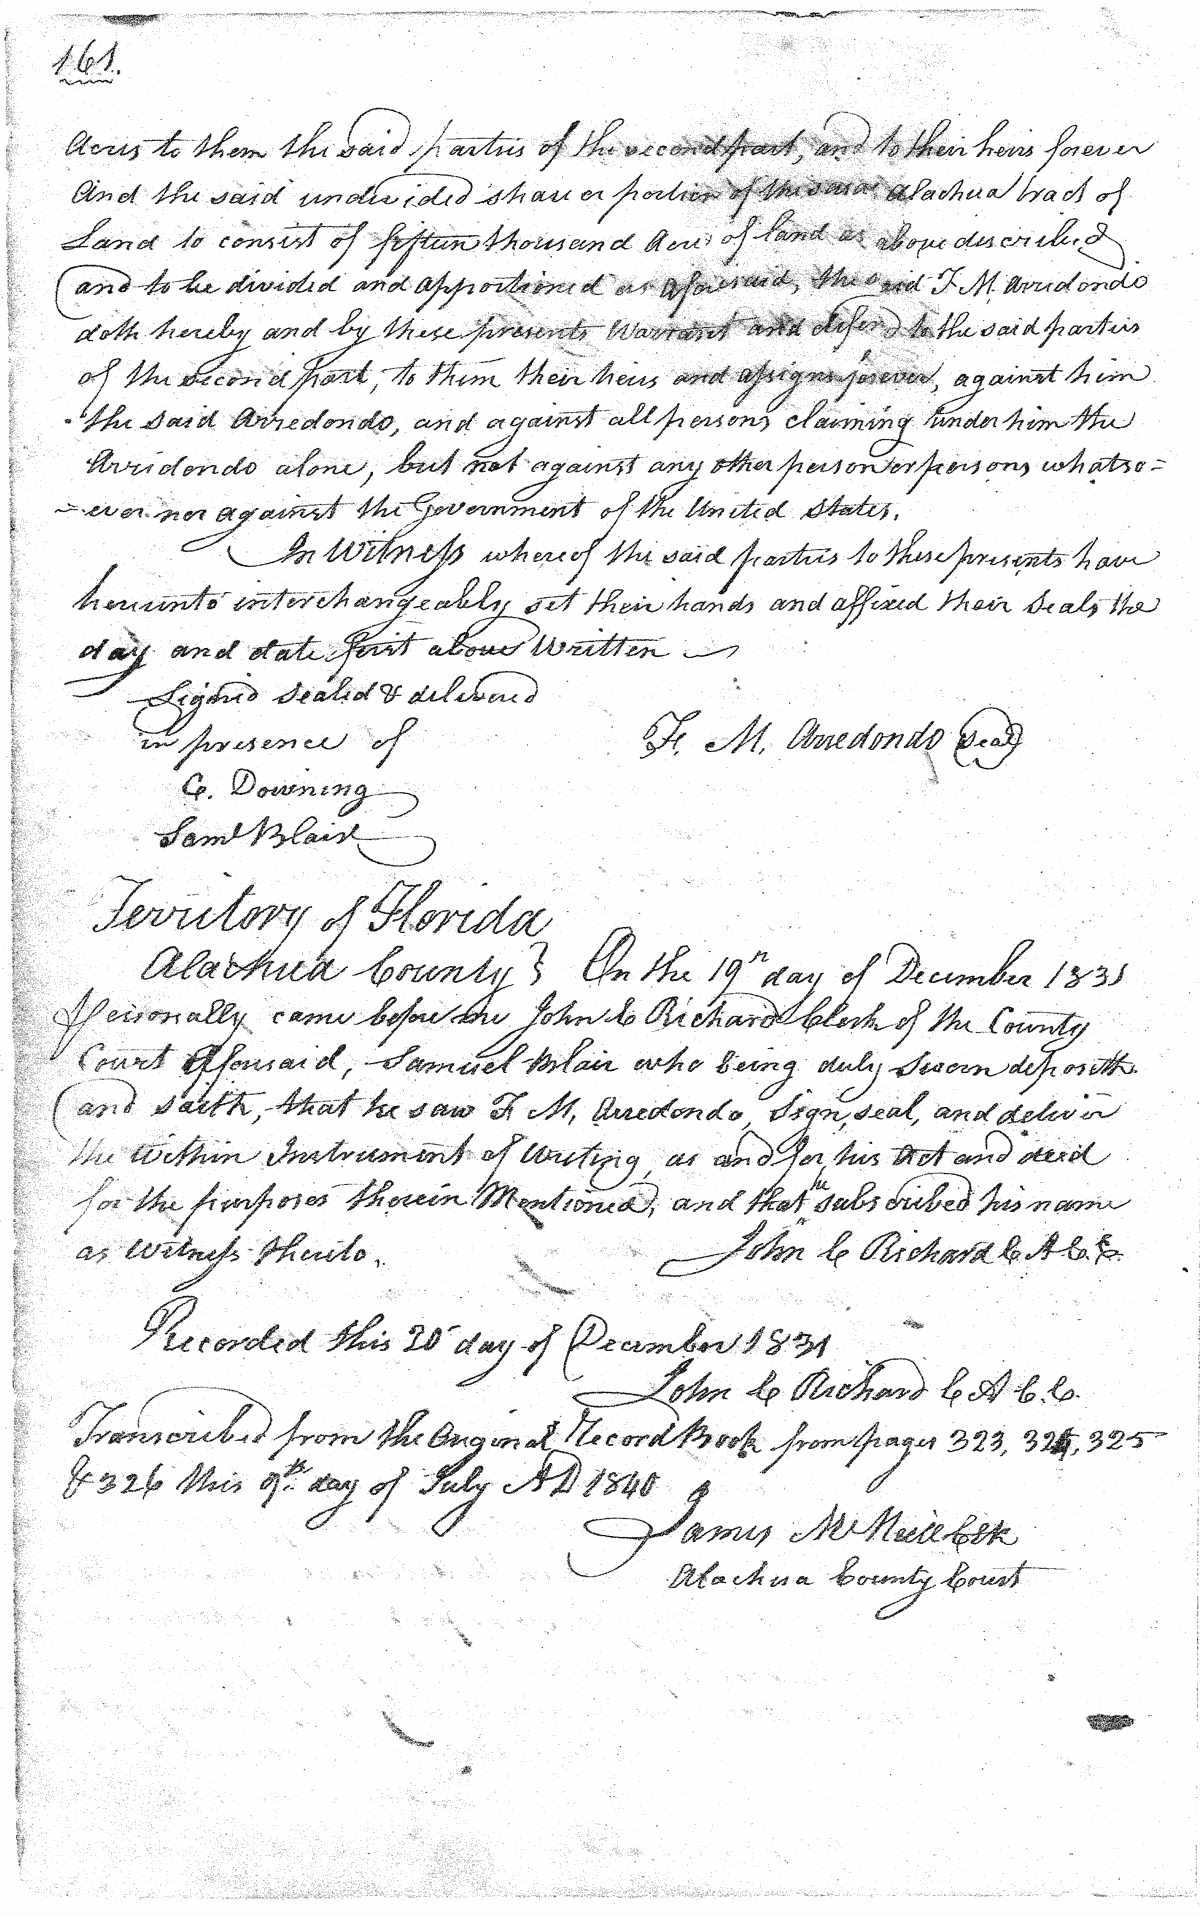 161.
Acres to them the said parties of the second part, and to their heirs forever
And the said undivided share or portion of the said Alachua tract of
Land to consist of fifteen thousand Acres of land as above described
and to be divided and apportioned as aforesaid, the said F. M. Arredondo
doth hereby and by these presents Warrant and defend to the said parties
of the second part, to them their heirs and assigns forever, against him
the said Arredondo, and against all persons claiming under him the
Arridondo alone, but not against any other person or persons whatso=
=ever nor against the Government of the United States.
In Witness whereof the said parties to these presents have
hereunto interchangeably set their hands and affixed their seals the
day and date first above Written
Signed sealed & delivered
in presence of
F. M. Arredondo seal
C. Downing
Saml Blair
Territory of Florida
Alachua County } On the 19th day of December 1831
Personally came before me John C Richard Clerk of the County
Court afforesaid, Samuel Blair who being duly sworn deposeth
and saith, that he saw F. M. Arredondo, Sign, seal, and deliver
the within Instrument of Writing, as and for his Act and deed
for the purposes therein Mentioned, and that he subscribed his name
as Witness thereto.
John C Richard C A C. C.
Recorded this 20 day of December 1831
John C Richard C A C. C.
Transcribed from the Original Record Book from pages 323, 324, 325
& 326 this 9th day of July AD 1840
James McNeill Clk
Alachua County Court